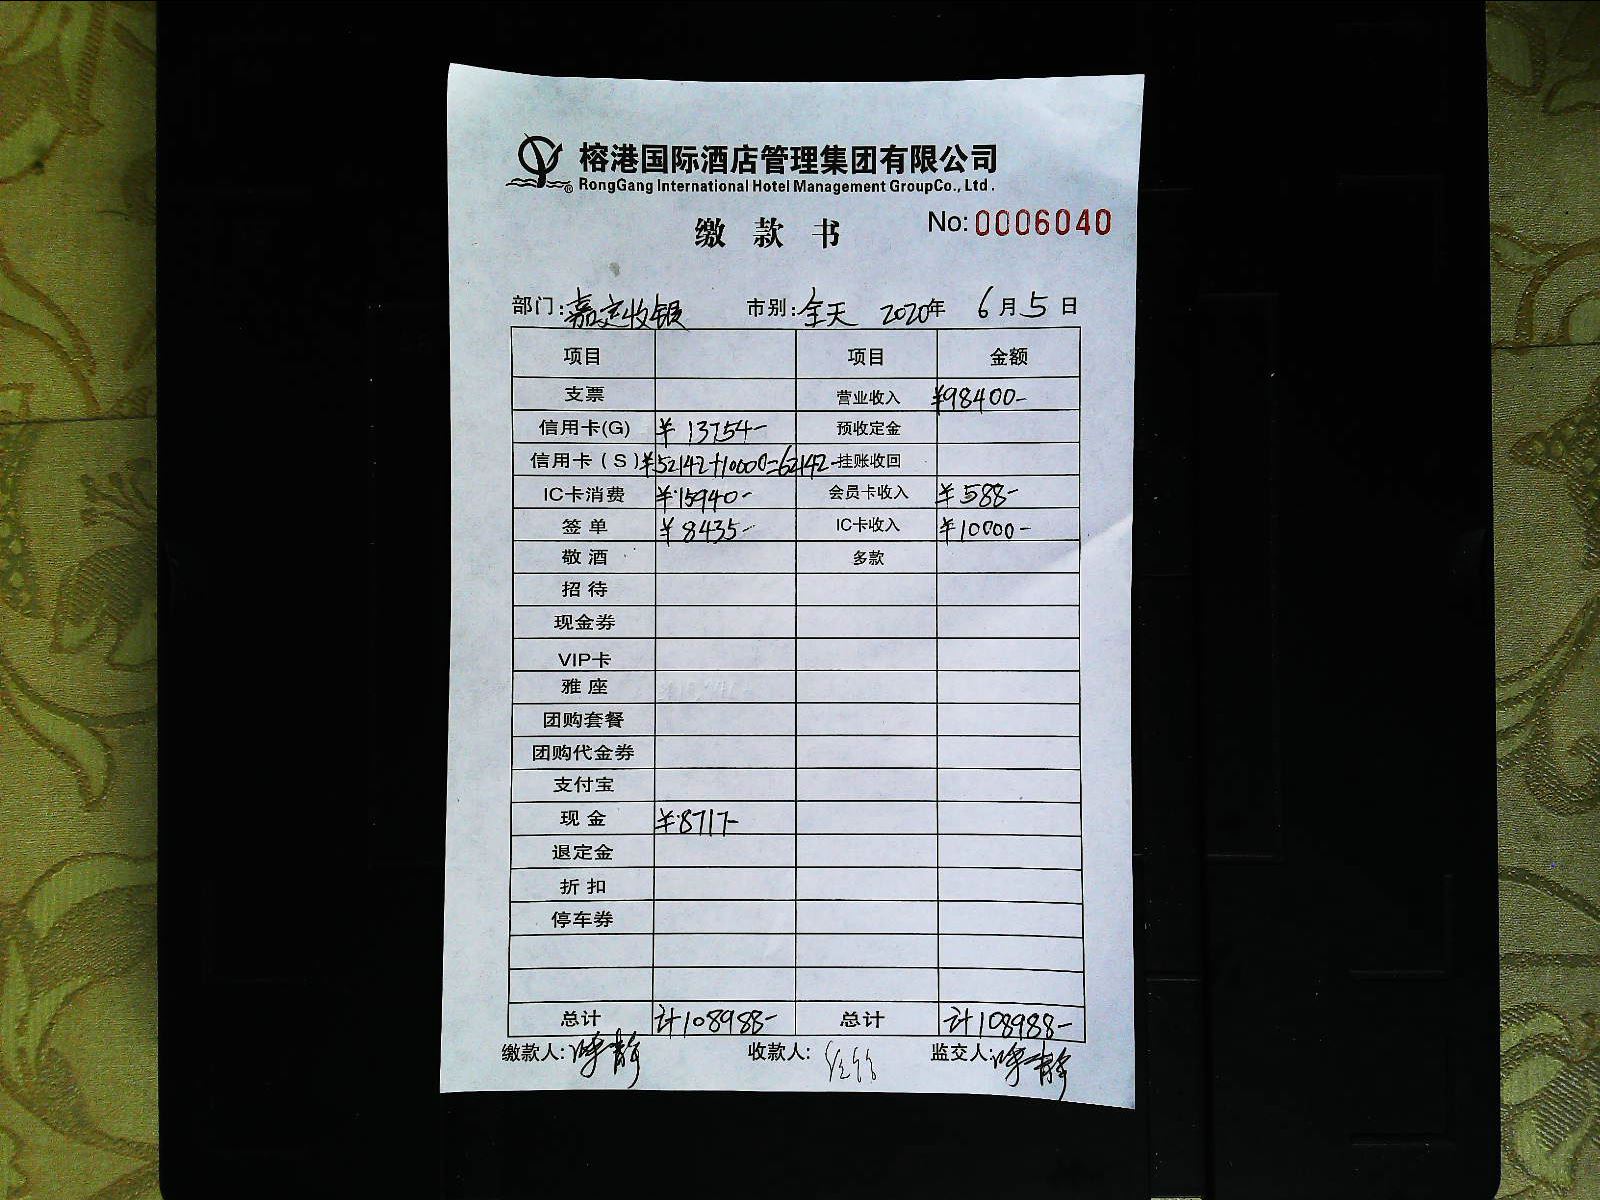 榕港国际酒店管理集团有限公司
RongGang International Hotel Management GroupCo., Ltd.
缴款书 No: 0006040
部门: 嘉定收银 市别: 全天 2020年 6月5日
项目 项目 金额
支票 营业收入 ¥98400-
信用卡(G) ¥13754- 预收定金
信用卡(S) ¥52142+10000=62142- 挂账收回
IC卡消费 ¥15940- 会员卡收入 ¥588-
签单 ¥8435- IC卡收入 ¥10000-
敬酒 多款
招待
现金券
VIP卡
雅座
团购套餐
团购代金券
支付宝
现金 ¥8717-
退定金
折扣
停车券
总计 计108988- 总计 计108988-
缴款人: 收款人: 监交人: